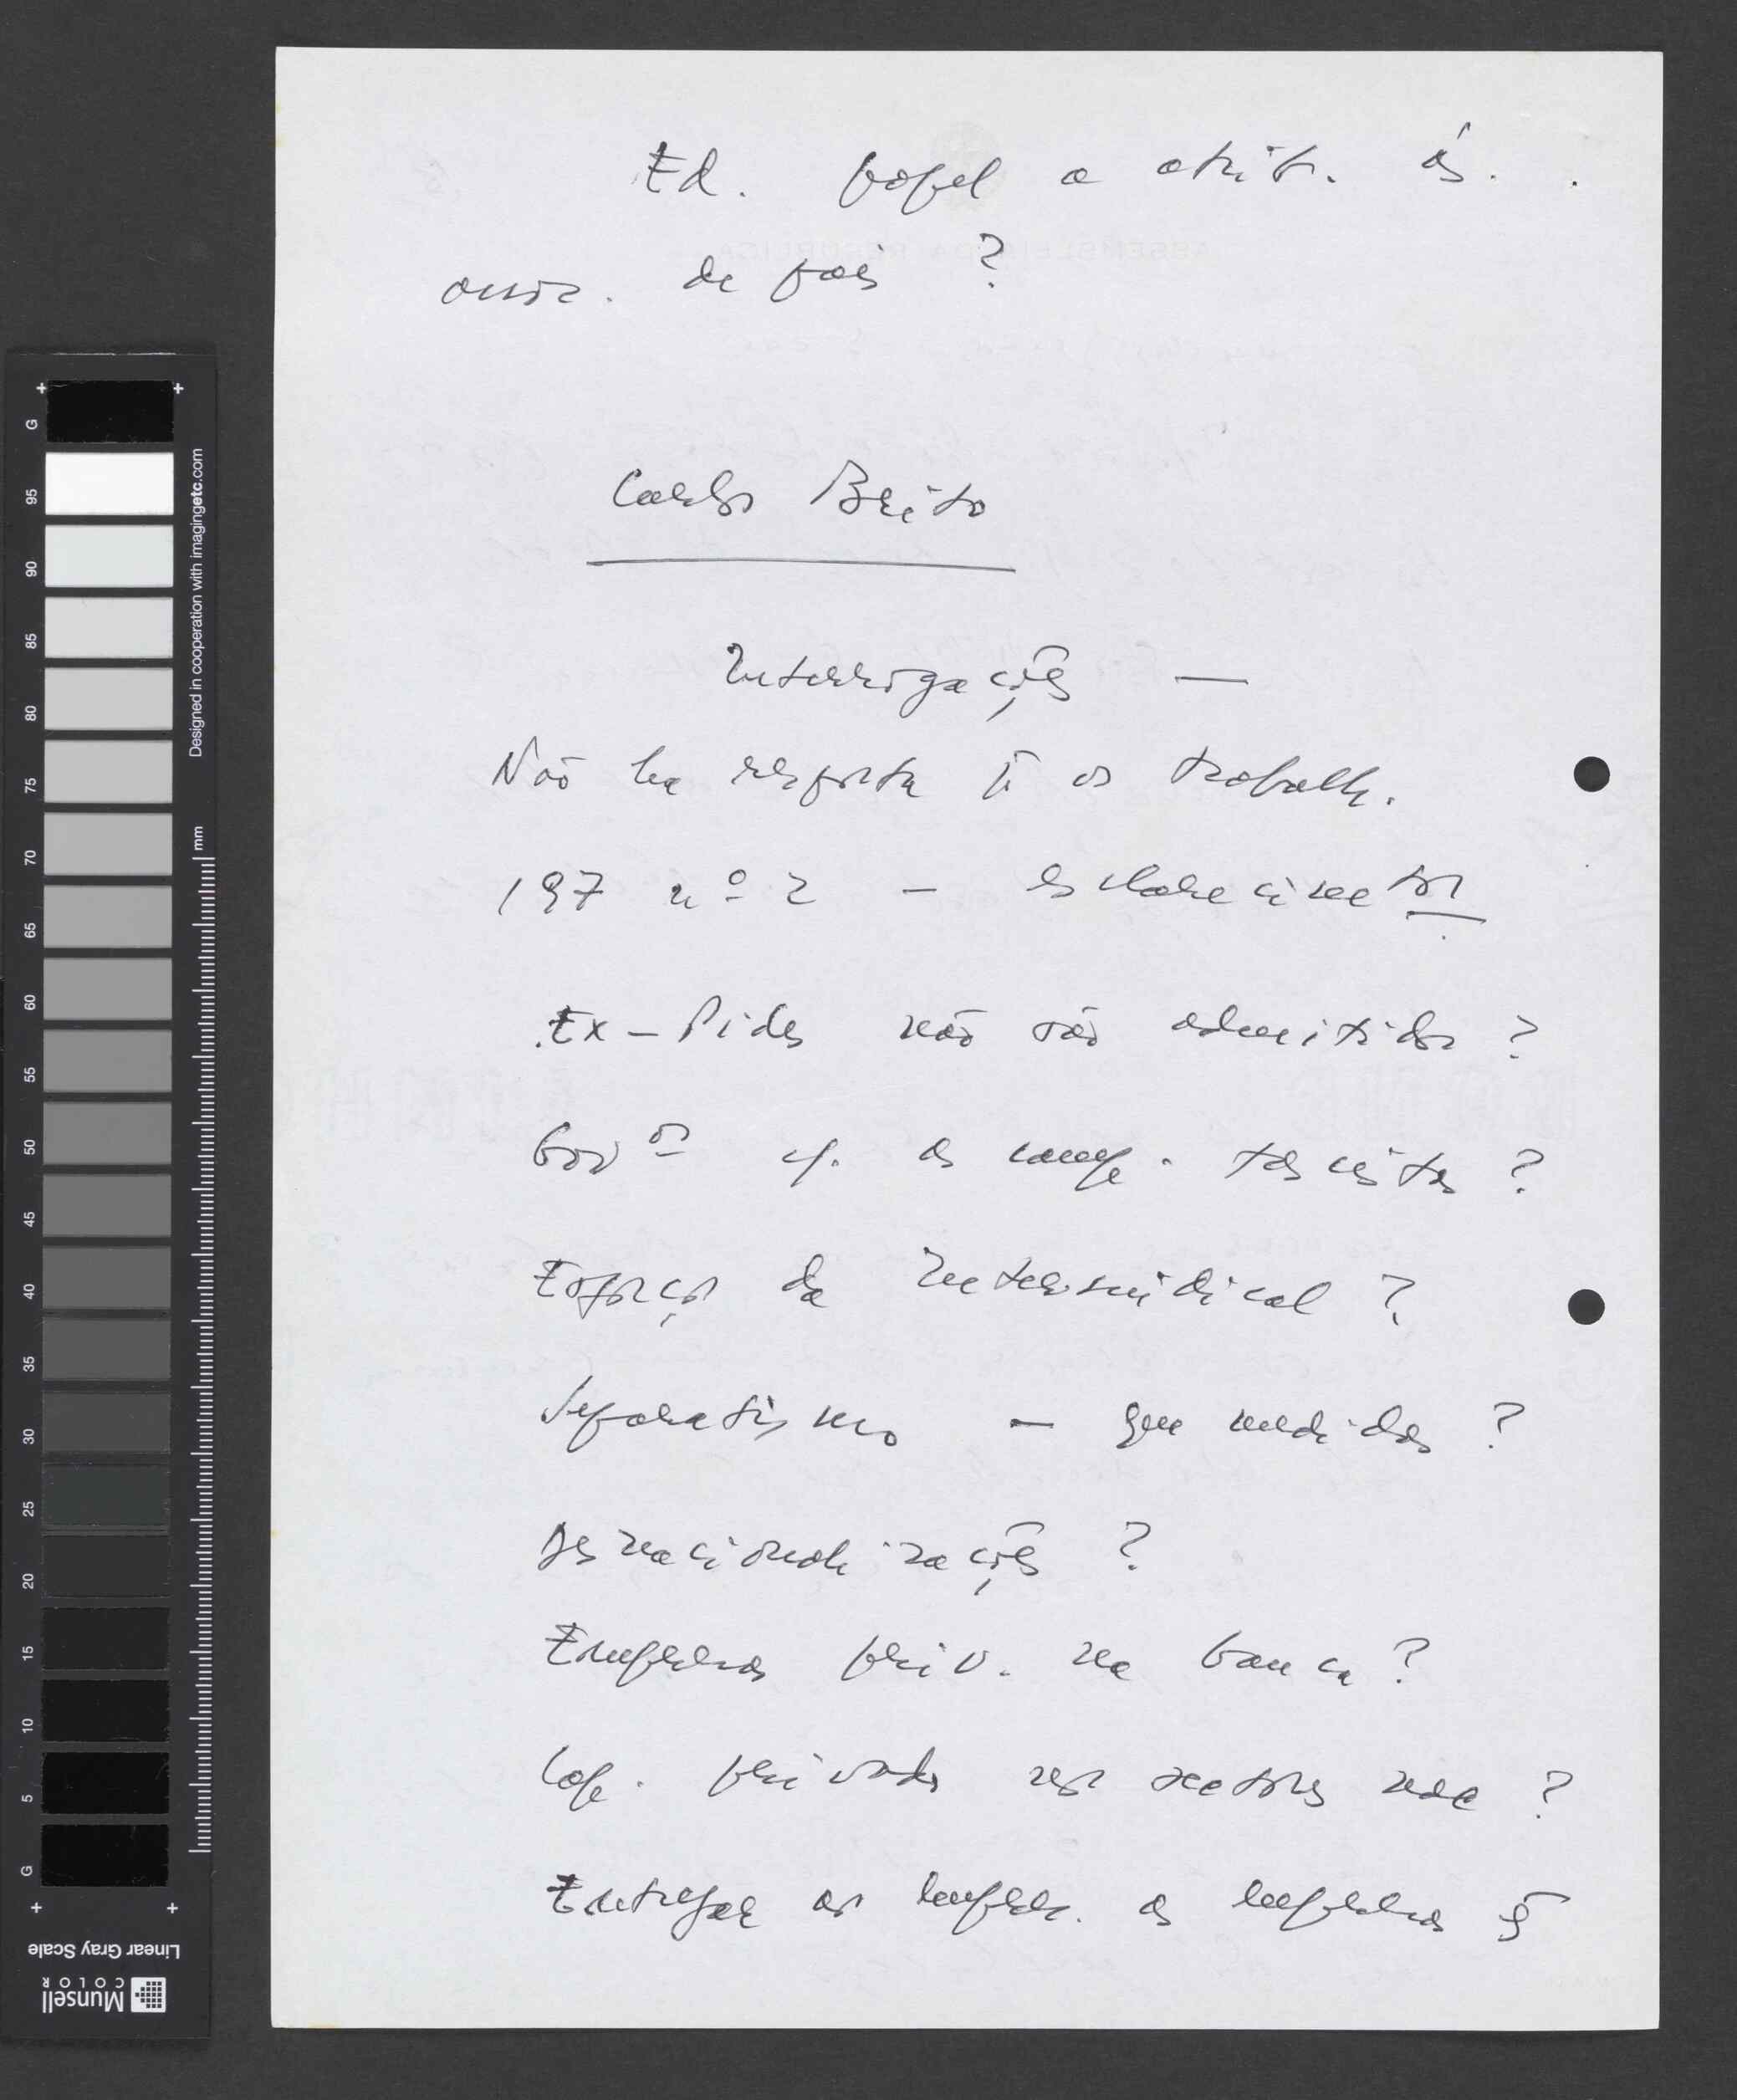 Ed. papel a atrib. às
assoc. de pais ?
Carlos Brito
Interrogações —
Não há resposta p. os trabalh.
197 nº 2 — esclarecimentos
Ex-Pides não são admitidos ?
Govº as camp. fascistas ?
Esforços da Intersindical ?
Separatismo — que medidas ?
Desnacionalizações ?
Empresas priv. na banca ?
Cap. privado nos sectores nac ?
Entregar os empres. as empresas q̃
G
95
90
85
80
75
70
65
60
55
50
45
40
35
30
25
20
15
10
5
G
Designed in cooperation with imagingetc.com
mm
Linear Gray Scale
Munsell
COLOR
ASSEMBLEIA DA REPÚBLICA